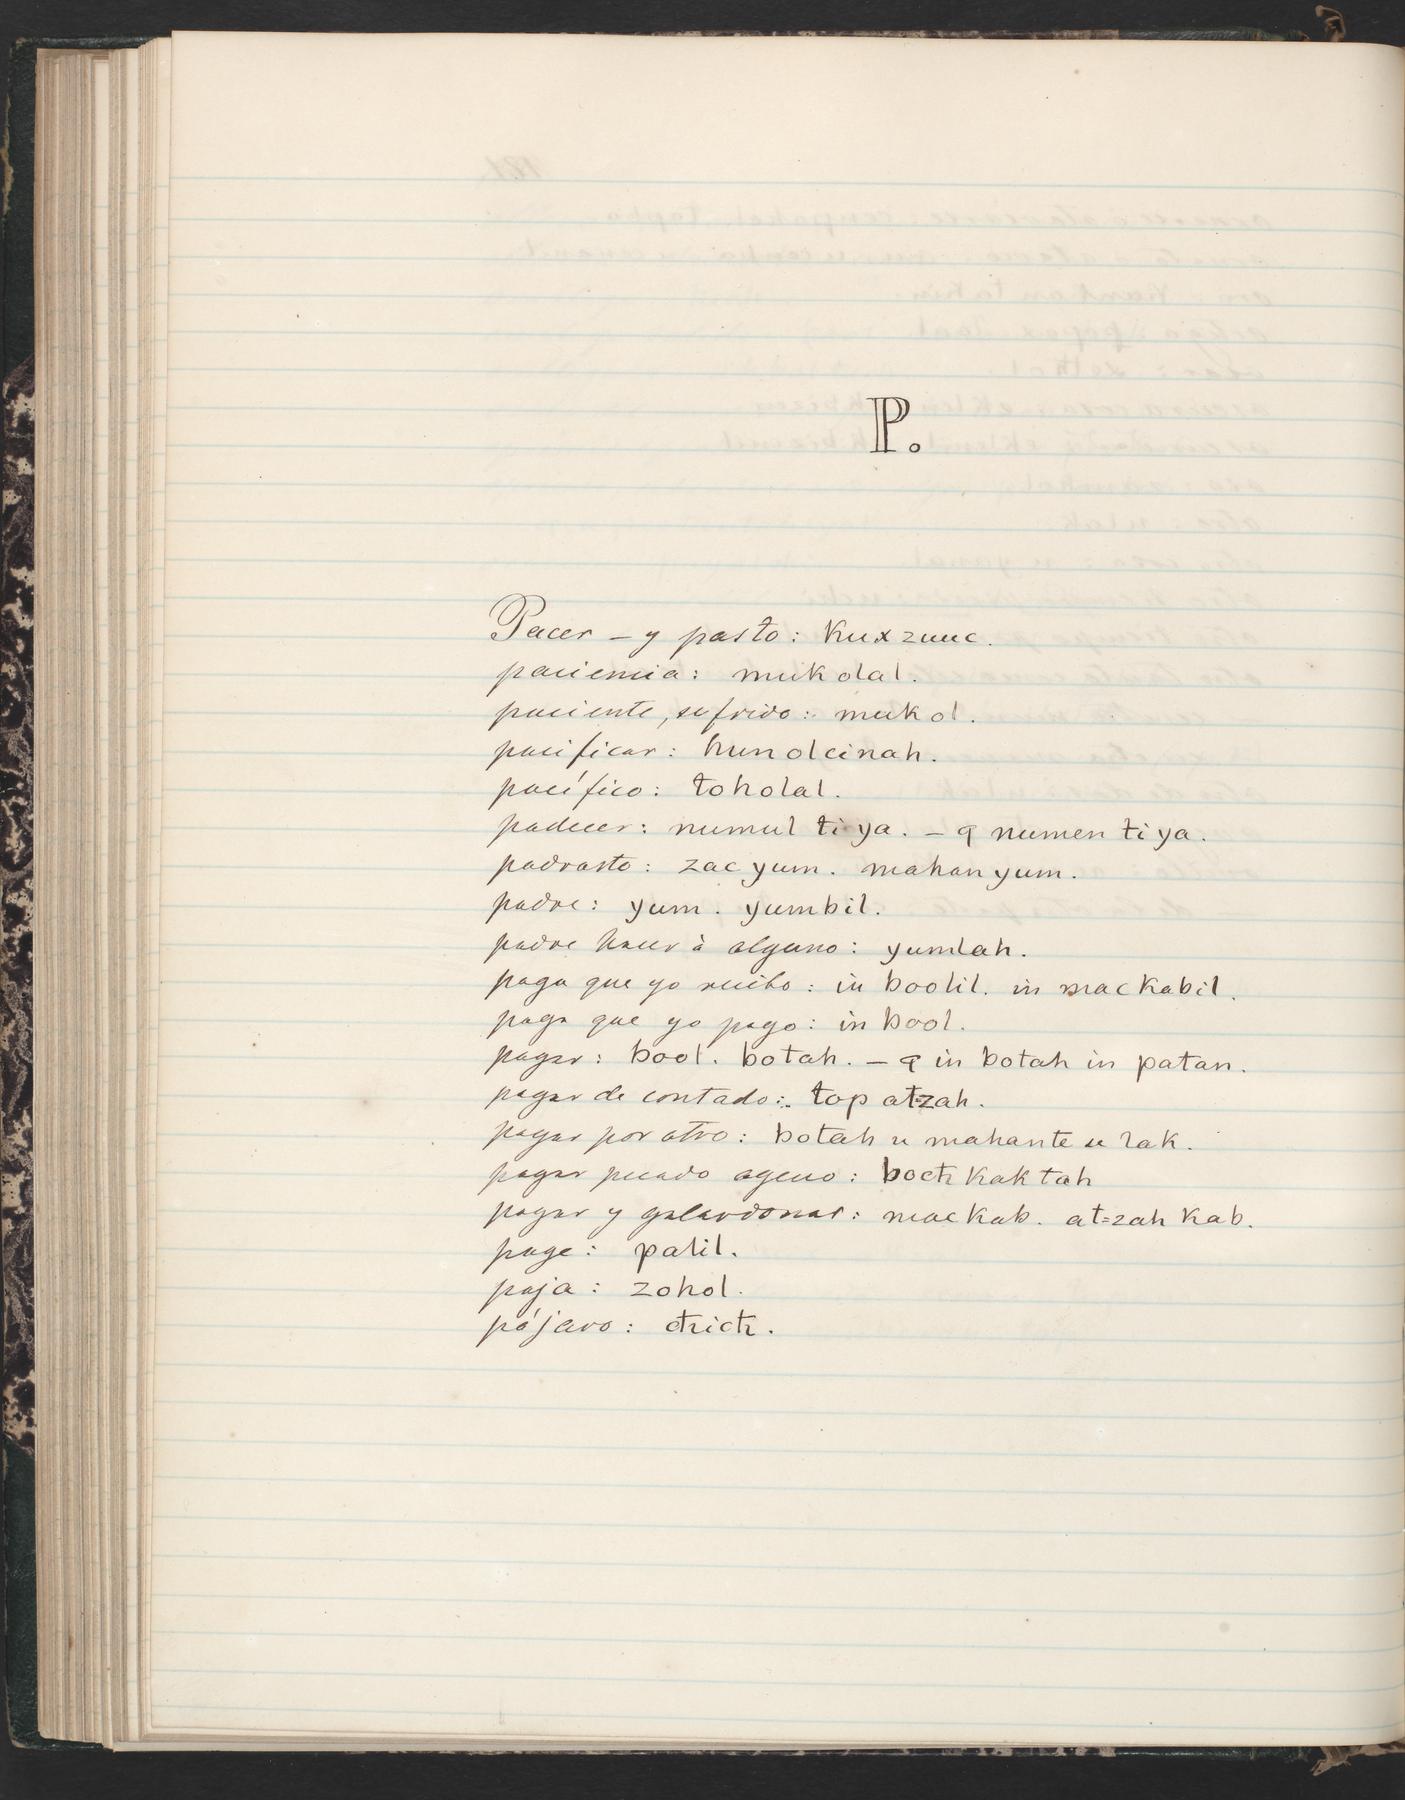 P.
Pacer – y pasto: kux zuuc.
paciencia: muk olal.
paciente, sufrido: muk ol.
pacificar: hun olcinah.
pacífico: toholal.
padecer: numul ti ya. – q numen ti ya.
padrasto: zac yum. mahan yum.
padre: yum. yumbil.
padre hacer à alguno: yumlah.
paga que yo recibo: in boolil. in mac kabil.
paga que yo pago: in bool.
pagar: bool. botah. – q in botah in patan.
pagar de contado: top atzah.
pagar por otro: botah u mahante u lak.
pagar pecado ageno: boch kak tah
pagar y galardonar: mac kab. at=zah kab.
page: palil.
paja: zohol.
pájaro: cħicħ.